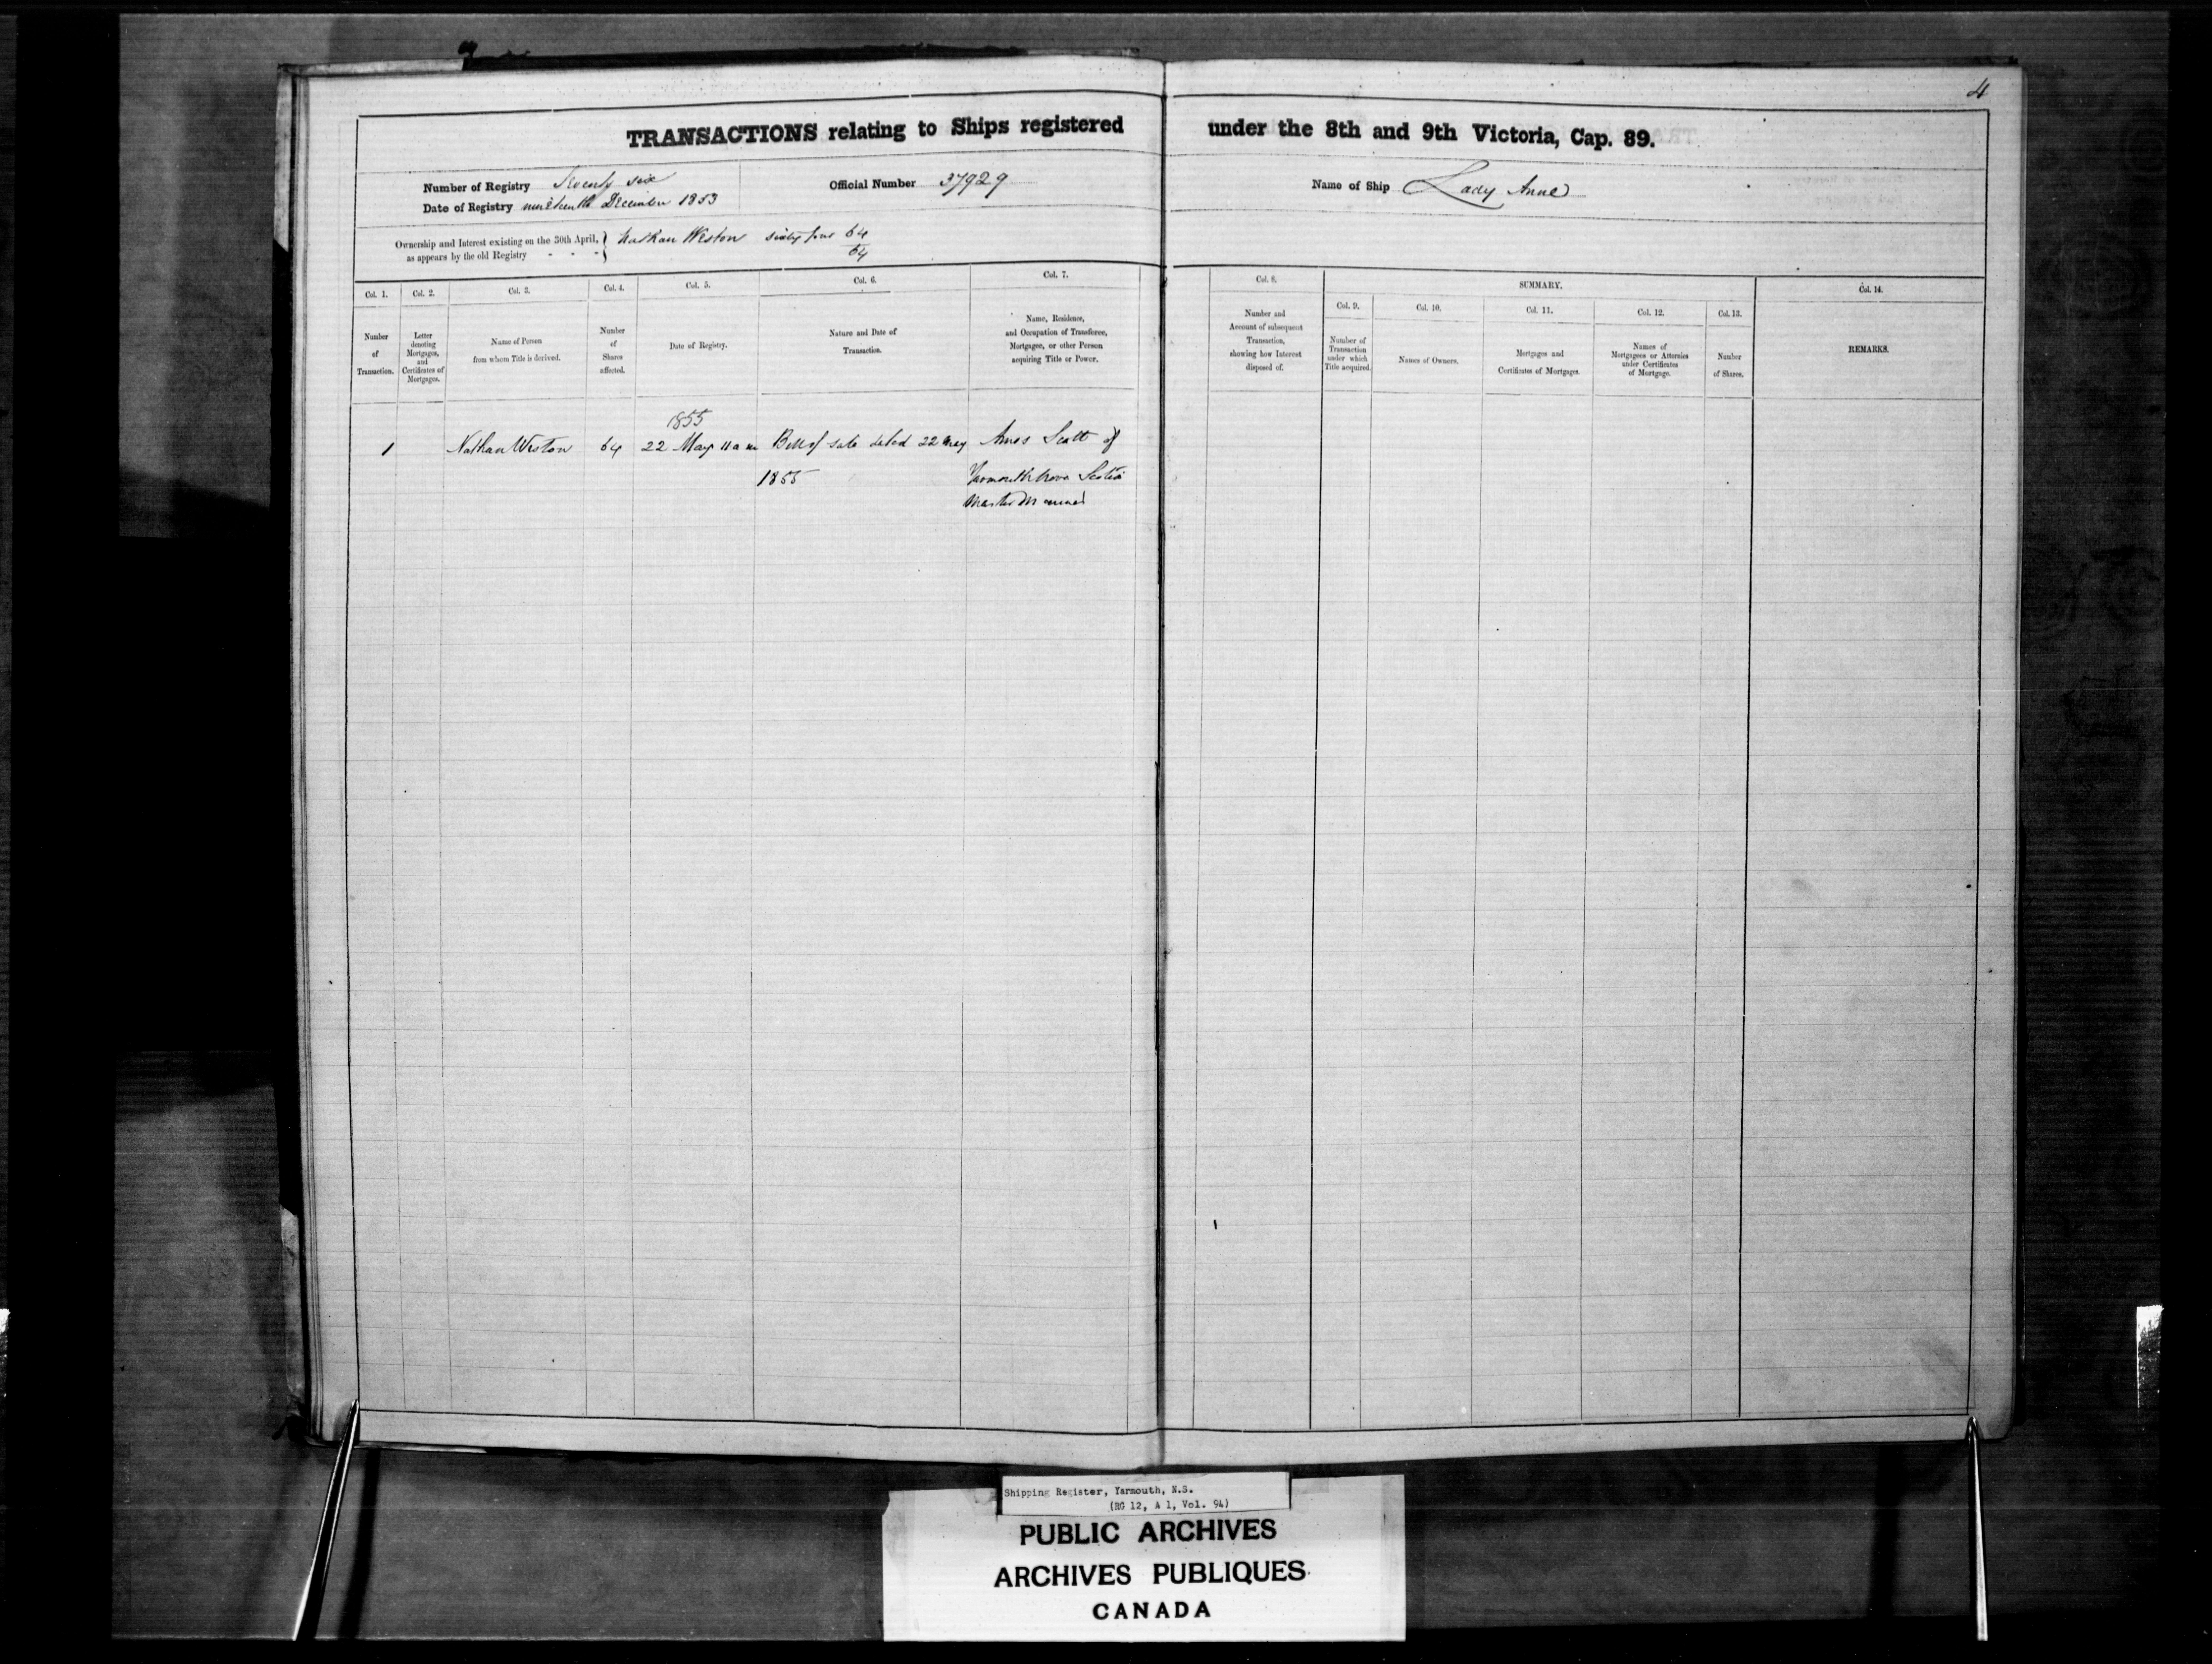 4
TRANSACTIONS relating to Ships registered under the 8th and 9th Victoria, Cap. 89.
Number of Registry Seventy six
Date of Registry nineteenth December 1853
Official Number 37929
Name of Ship Lady Anne
Ownership and Interest existing on the 30th April, } Nathan Weston sixty four 64
as appears by the old Registry - - - } 64
Col. 1.
Number
of
Transaction.
Col. 2.
Letter
denoting
Mortgages,
and
Certificates of
Mortgages.
Col. 3.
Name of Person
from whom Title is derived.
Col. 4.
Number
of
Shares
affected.
Col. 5.
Date of Registry.
Col. 6.
Nature and Date of
Transaction.
Col. 7.
Name, Residence,
and Occupation of Transferee,
Mortgagee, or other Person
acquiring Title or Power.
Col. 8.
Number and
Account of subsequent
Transaction,
showing how Interest
disposed of.
SUMMARY.
Col. 9.
Number of
Transaction
under which
Title acquired.
Col. 10.
Names of Owners.
Col. 11.
Mortgages and
Certificates of Mortgages.
Col. 12.
Names of
Mortgagees or Attornies
under Certificates
of Mortgage.
Col. 13.
Number
of Shares.
Col. 14.
REMARKS.
1855
1 Nathan Weston 64 22 May 11 a m Bill of sale dated 22 May Amos Scott of
1855 Yarmouth Nova Scotia
Master Mariner
Shipping Register, Yarmouth, N.S.
(RG 12, A 1, Vol. 94)
PUBLIC ARCHIVES
ARCHIVES PUBLIQUES
CANADA